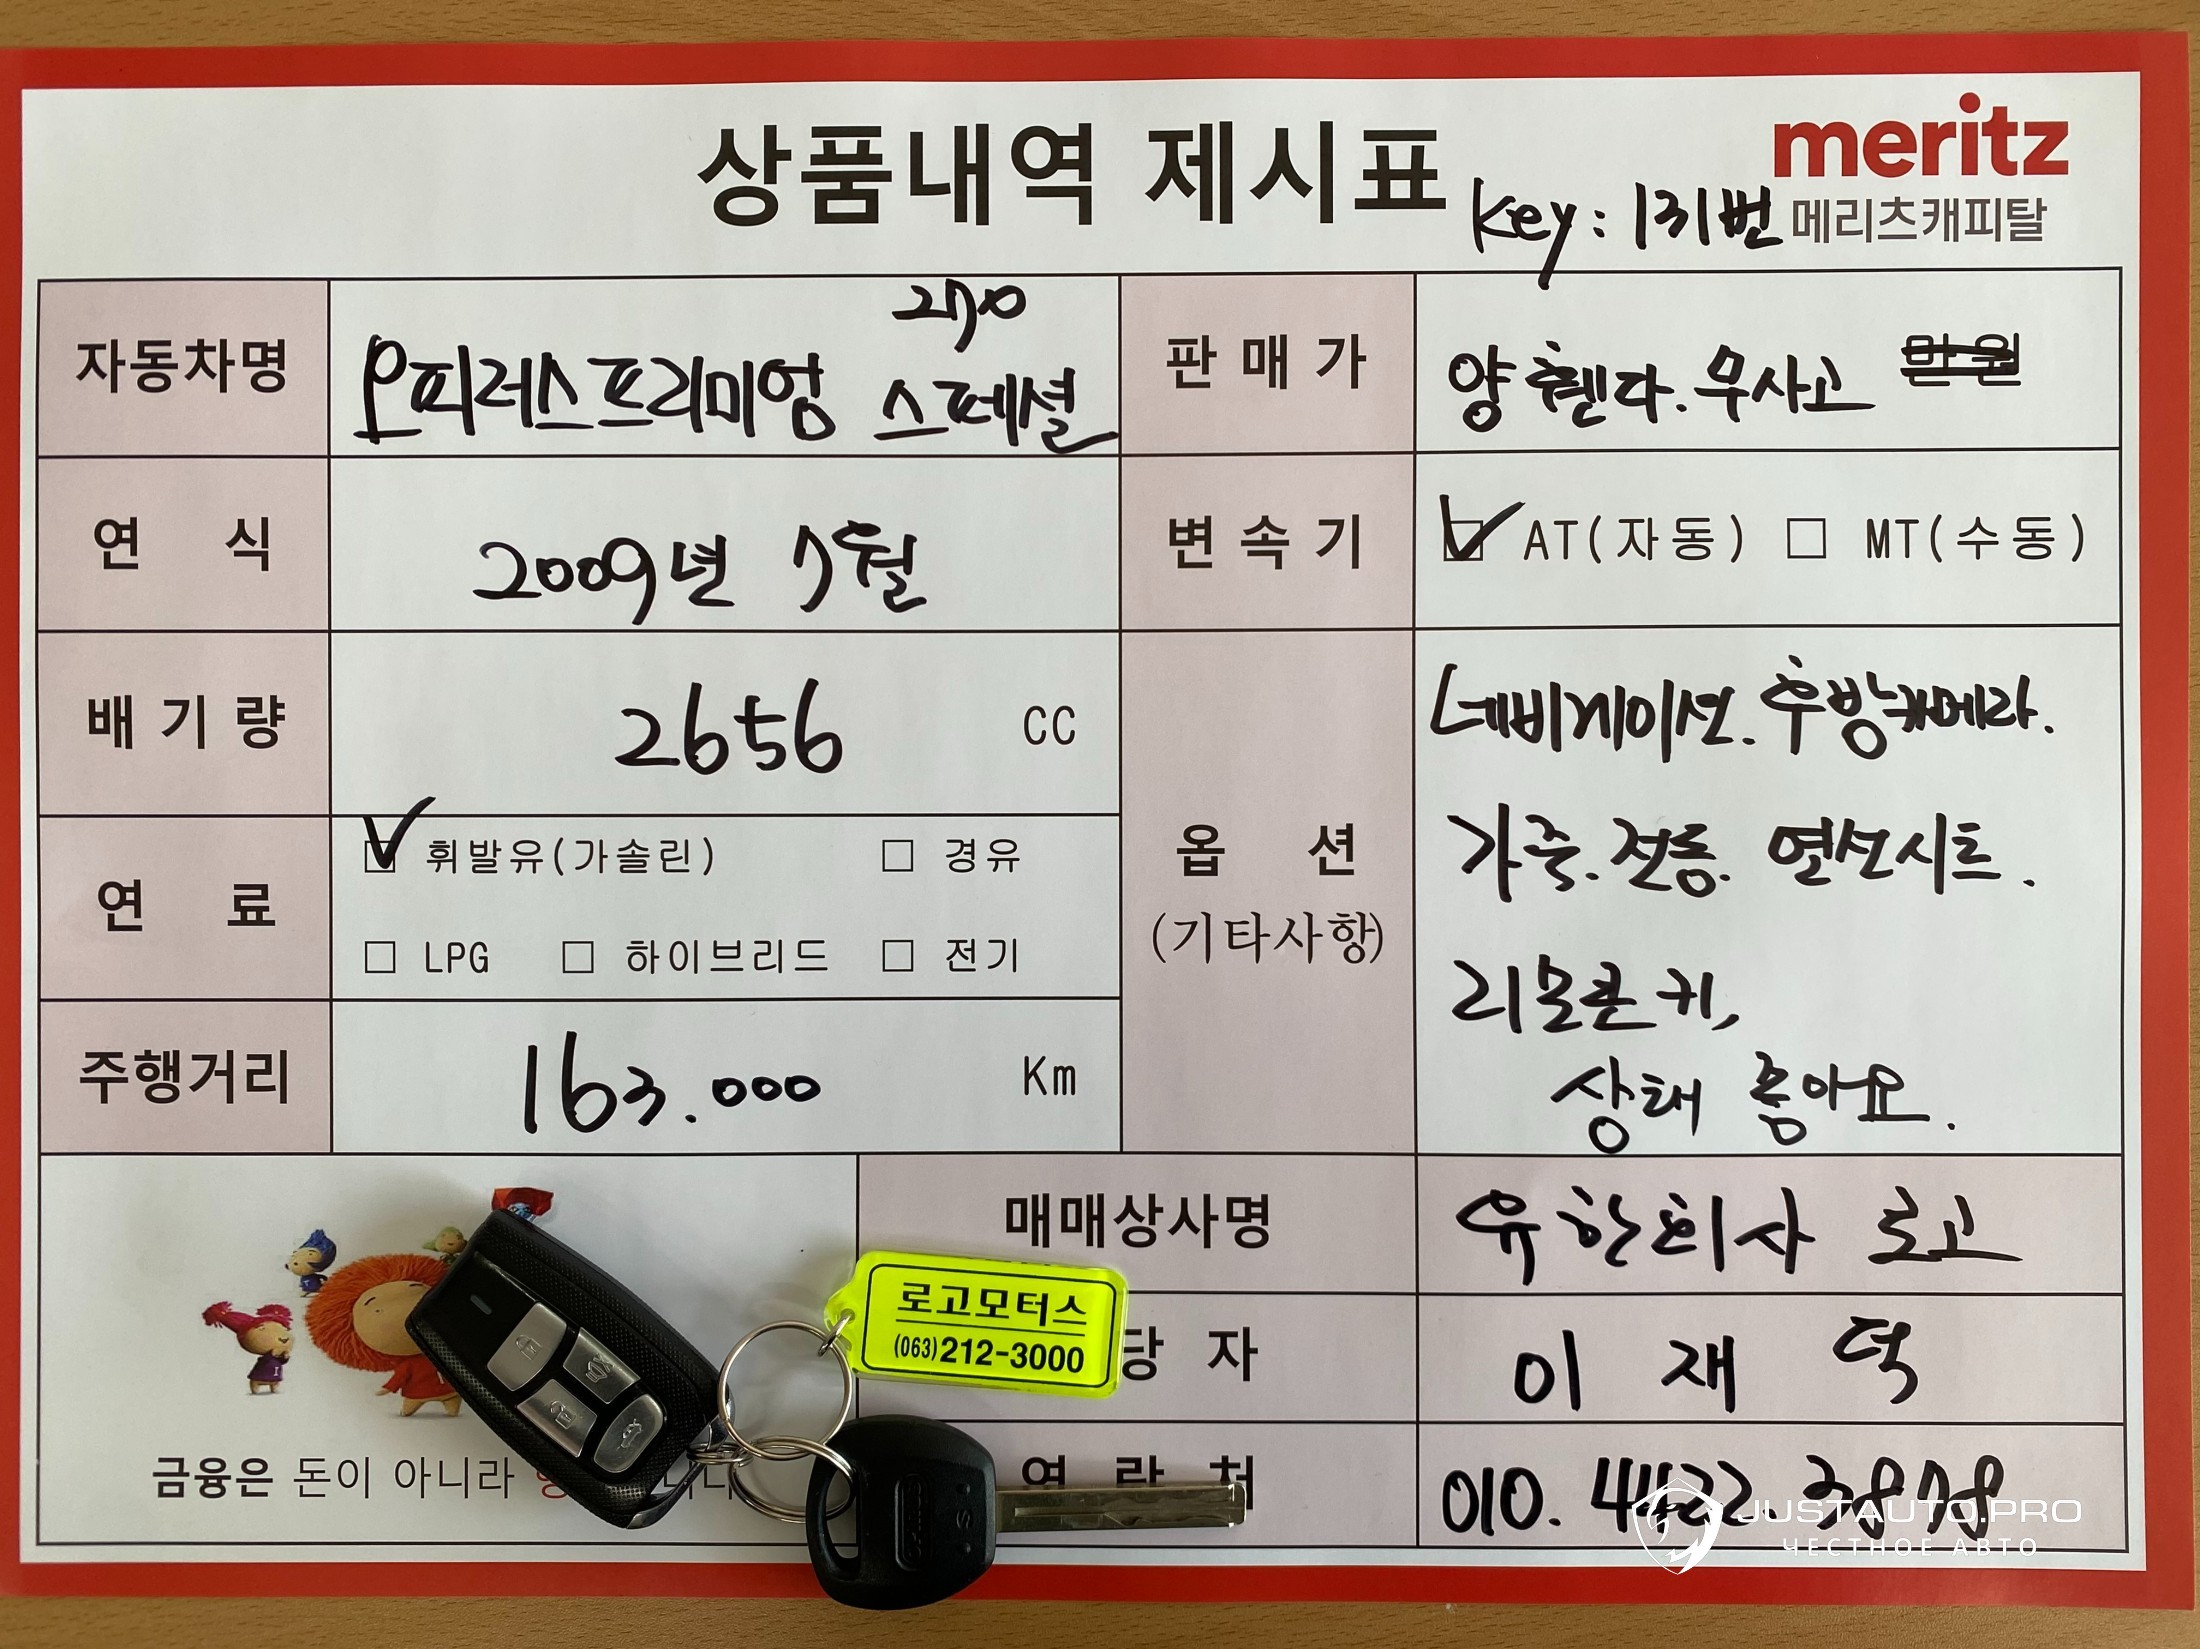 상품내역 제시표
meritz
메리츠캐피탈
Key : 131번
자동차명
270
오피러스프리미엄 스페셜
판매가
무사고 만원
연 식
2009년 7월
변속기
AT(자동) □ MT(수동)
배기량
2656 CC
옵 션
(기타사항)
네비게이션. 후방카메라.
가죽. 전동. 열선시트.
리모콘키,
상태 좋아요.
연 료
휘발유(가솔린) □ 경유
□ LPG □ 하이브리드 □ 전기
주행거리
163.000 Km
매매상사명
유한회사 로고
당 자
이 재 덕
연 락 처
010. 4422. 3878
금융은 돈이 아니라
로고모터스
(063)212-3000
JUSTAUTO.PRO
ЧЕСТНОЕ АВТО